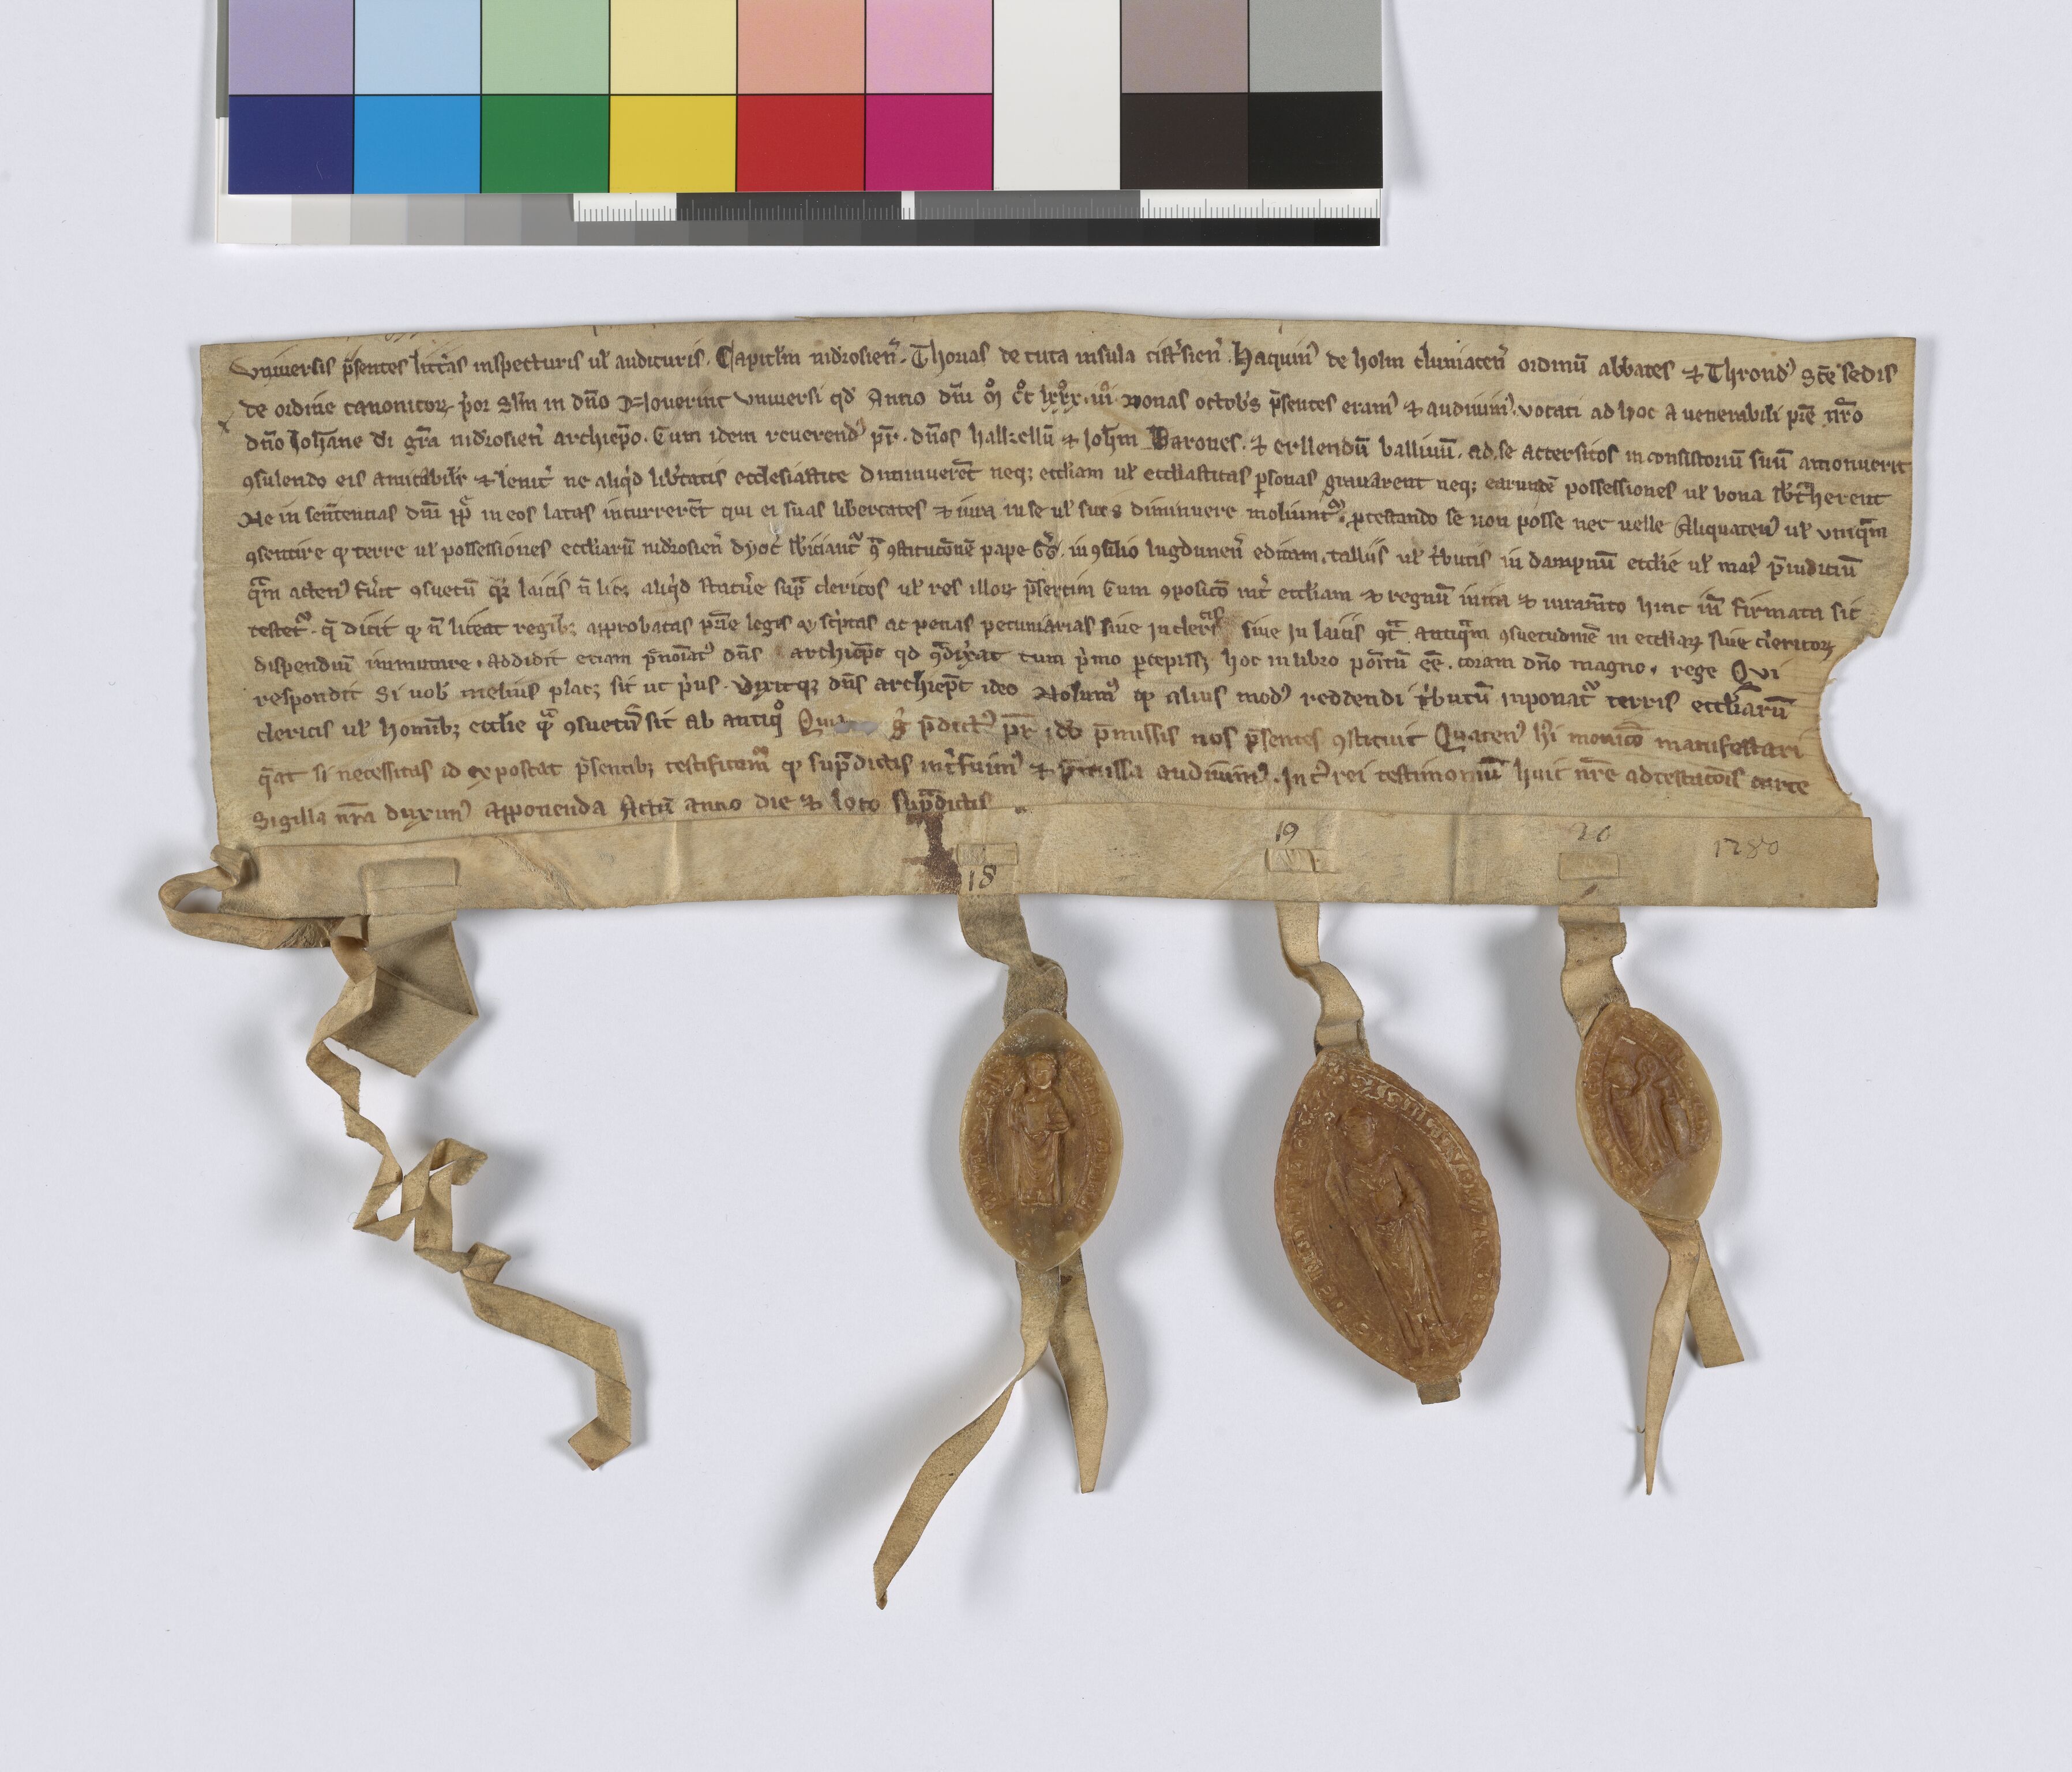 vniuersis p̄sentes litt̾as inspecturis uel̵ audituris. Capitl̵m nidrosien̾. Thomas de tuta insula cist̾sien̾. Haquinꝰ de holm cluniacen̾ ordinū abbates ⁊ Throndꝰ sc̄e sedis
de ordine canonicoꝝ p̾or sl̵m in dn̄o Nouerint vniuersi qd̾ Anno dn̄i mͦ ccͦ lxxxͦ. iiiͦ nonas octob̾s p̄sentes eramꝰ ⁊ audiuimꝰ. vocati ad hoc a venerabili pr̄e nr̄o
dn̄o Joh̄ane di gr̄a nidrosien̾ archiep̄o. Cum idem reuerendꝰ pr̄. dn̄os hallkellū ⁊ Joh̄m Barones. ⁊ erllendū balliuū. ad se accersitos in consistoriū suū amonuerit
ꝯsulendo eis amicabilit̾ ⁊ lenit̾ ne aliq̾d lib̾tatis ecclesiastice diminuerēt neqꝫ eccl̵iam ul̵ eccl̵iasticas ꝑsonas grauarent neqꝫ earundē possessiones ul̵ bona sb̾t̾herent
Ne in sen̄tencias dn̄i pp̄e in eos latas incurrerēt qui ei suas libertates ⁊ iura in se ul̵ suos diminuere moliunt᷑. ꝓtestando se non posse nec uelle Aliquatenꝰ ul̵ vnq̄m
ꝯsentire ꝙ terre ul̵ possessiones eccl̵iarū nidrosien̾ dyoc̾ sb̾iciant᷑ ꝯ̄ ꝯstituc̄onē pape Gͬ. in ꝯsilio lugdunen̾ editam. talliis ul̵ t̾butis in dampnū eccl̵ie ul̵ maiꝰ p̄iudiciū
q̄m actenꝰ fu̾it ꝯsuetū q̾ꝫ laicis n̄ licꝫ aliq̾d statu̾e sup̄ clericos ul̵ res illoꝝ p̄sertim Cum ꝯposic̄o int̾ eccl̵iam ⁊ regnū inita ⁊ iuram̄to hinc in̄ firmata sic
testet᷑. q̄ dicit ꝙ n̄ liceat regibꝫ approbatas pr̄ie leges ꝙ sc̾ptas ac penas pecuniarias siue in clericis siue in laicis ꝯt̄. antiq̄m ꝯsuetudinē in eccl̵iaꝝ siue clericoꝝ
dispendiū inmutare. addidit etiam p̄noīatꝰ dn̄s archiep̄c qd ꝯ̄dix̾at cum p̾mo ꝑcepissꝫ hoc in libro poītū eē. coram dn̄o magno. rege Qui
respondit Si uob̾ melius placꝫ sit ut p̾us. Dixitqꝫ dn̄s archiep̄c ideo Nolumꝰ ꝙ alius modꝰ reddendi t̾butū inponat᷑ terris eccl̵iarū
clericis ul̵ hominibꝫ eccl̵ie q̄ ꝯsuetū sit ab antiqͦ g̾ p̄dictꝰ pr̄ p̄missis nos p̄sentes ꝯstituit Quatenꝰ hͥ monic̄o manifestari
q̾at si necessitas id exposcat p̄sentibꝫ testificam᷑ ꝙ sup̄dictis int̾fuimꝰ ⁊ p̄missa audiuimꝰ. In cꝰ rei testimoniū huic nr̄e adtestac̄ois carte
Sigilla nr̄a duximꝰ apponenda Actū anno die ⁊ loco sup̄dictis
18
19
20
1280